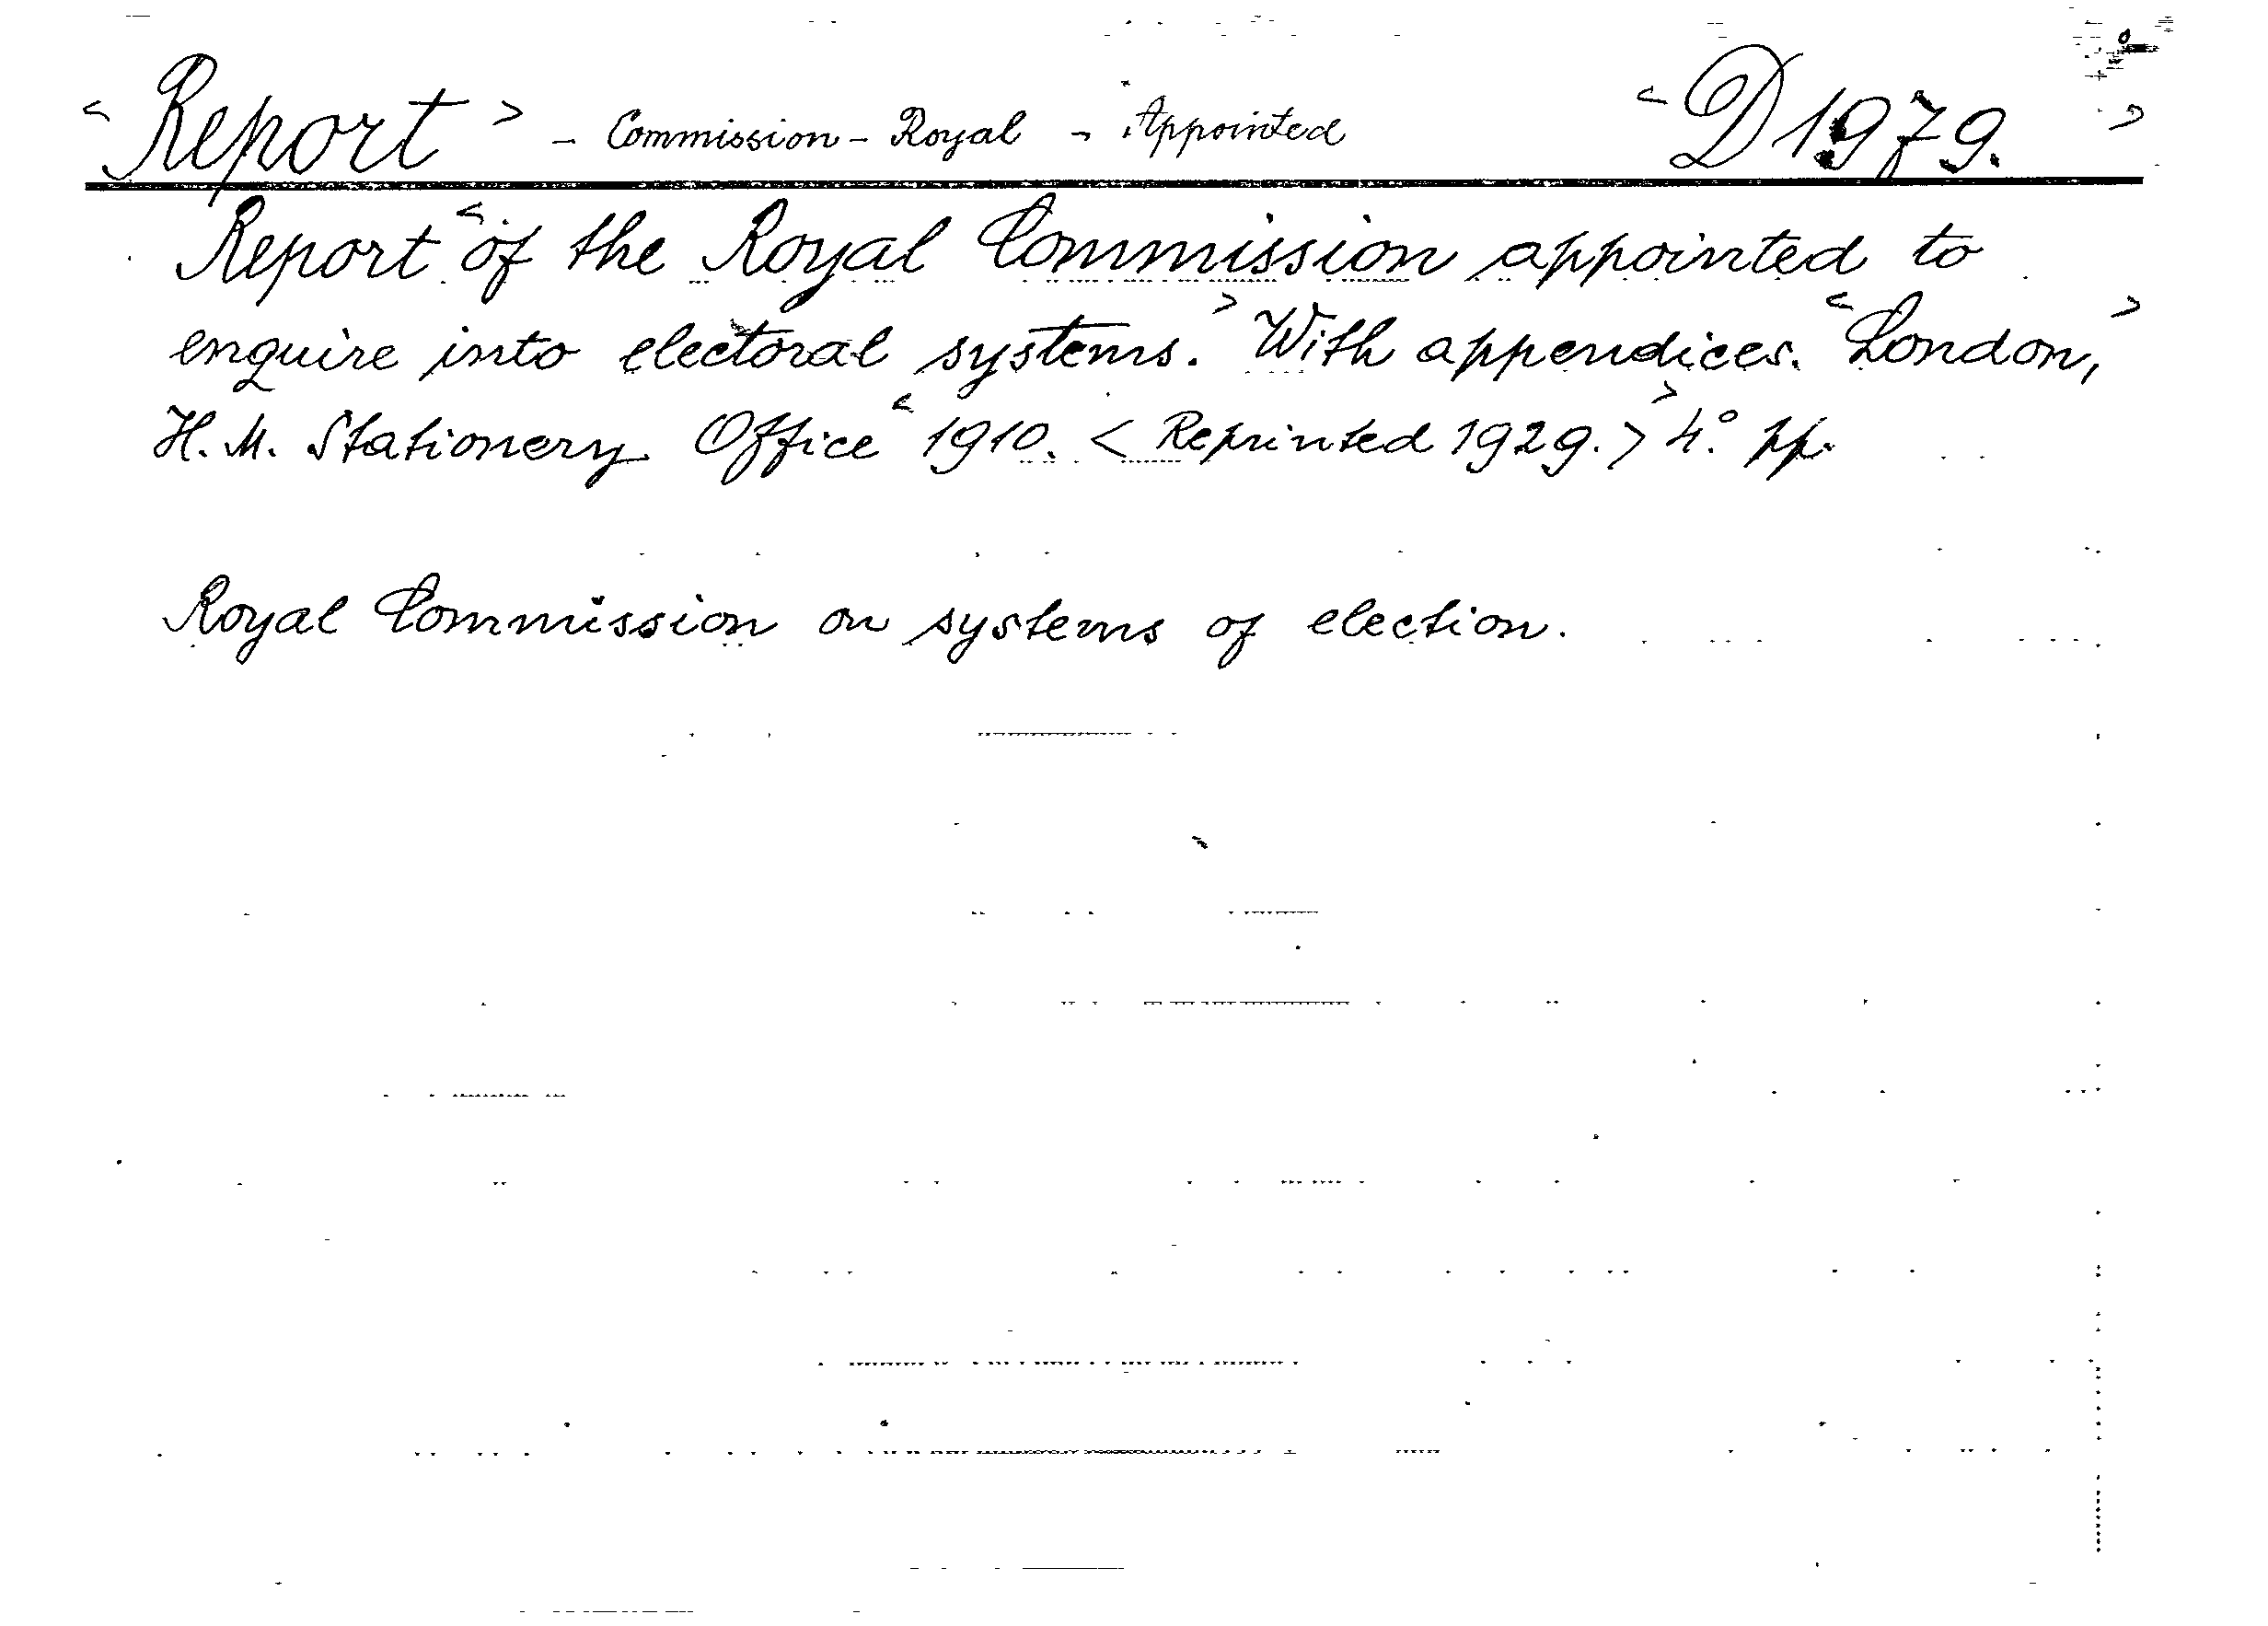 <Report> - Commission - Royal - Appointed <D 1979.>
Report <of the Royal Commission appointed to
enquire into electoral systems.> With appendices. <London,>
H. M. Stationery Office <1910. < Reprinted 1929. >> 4.° pp.
Royal Commission on systems of election.